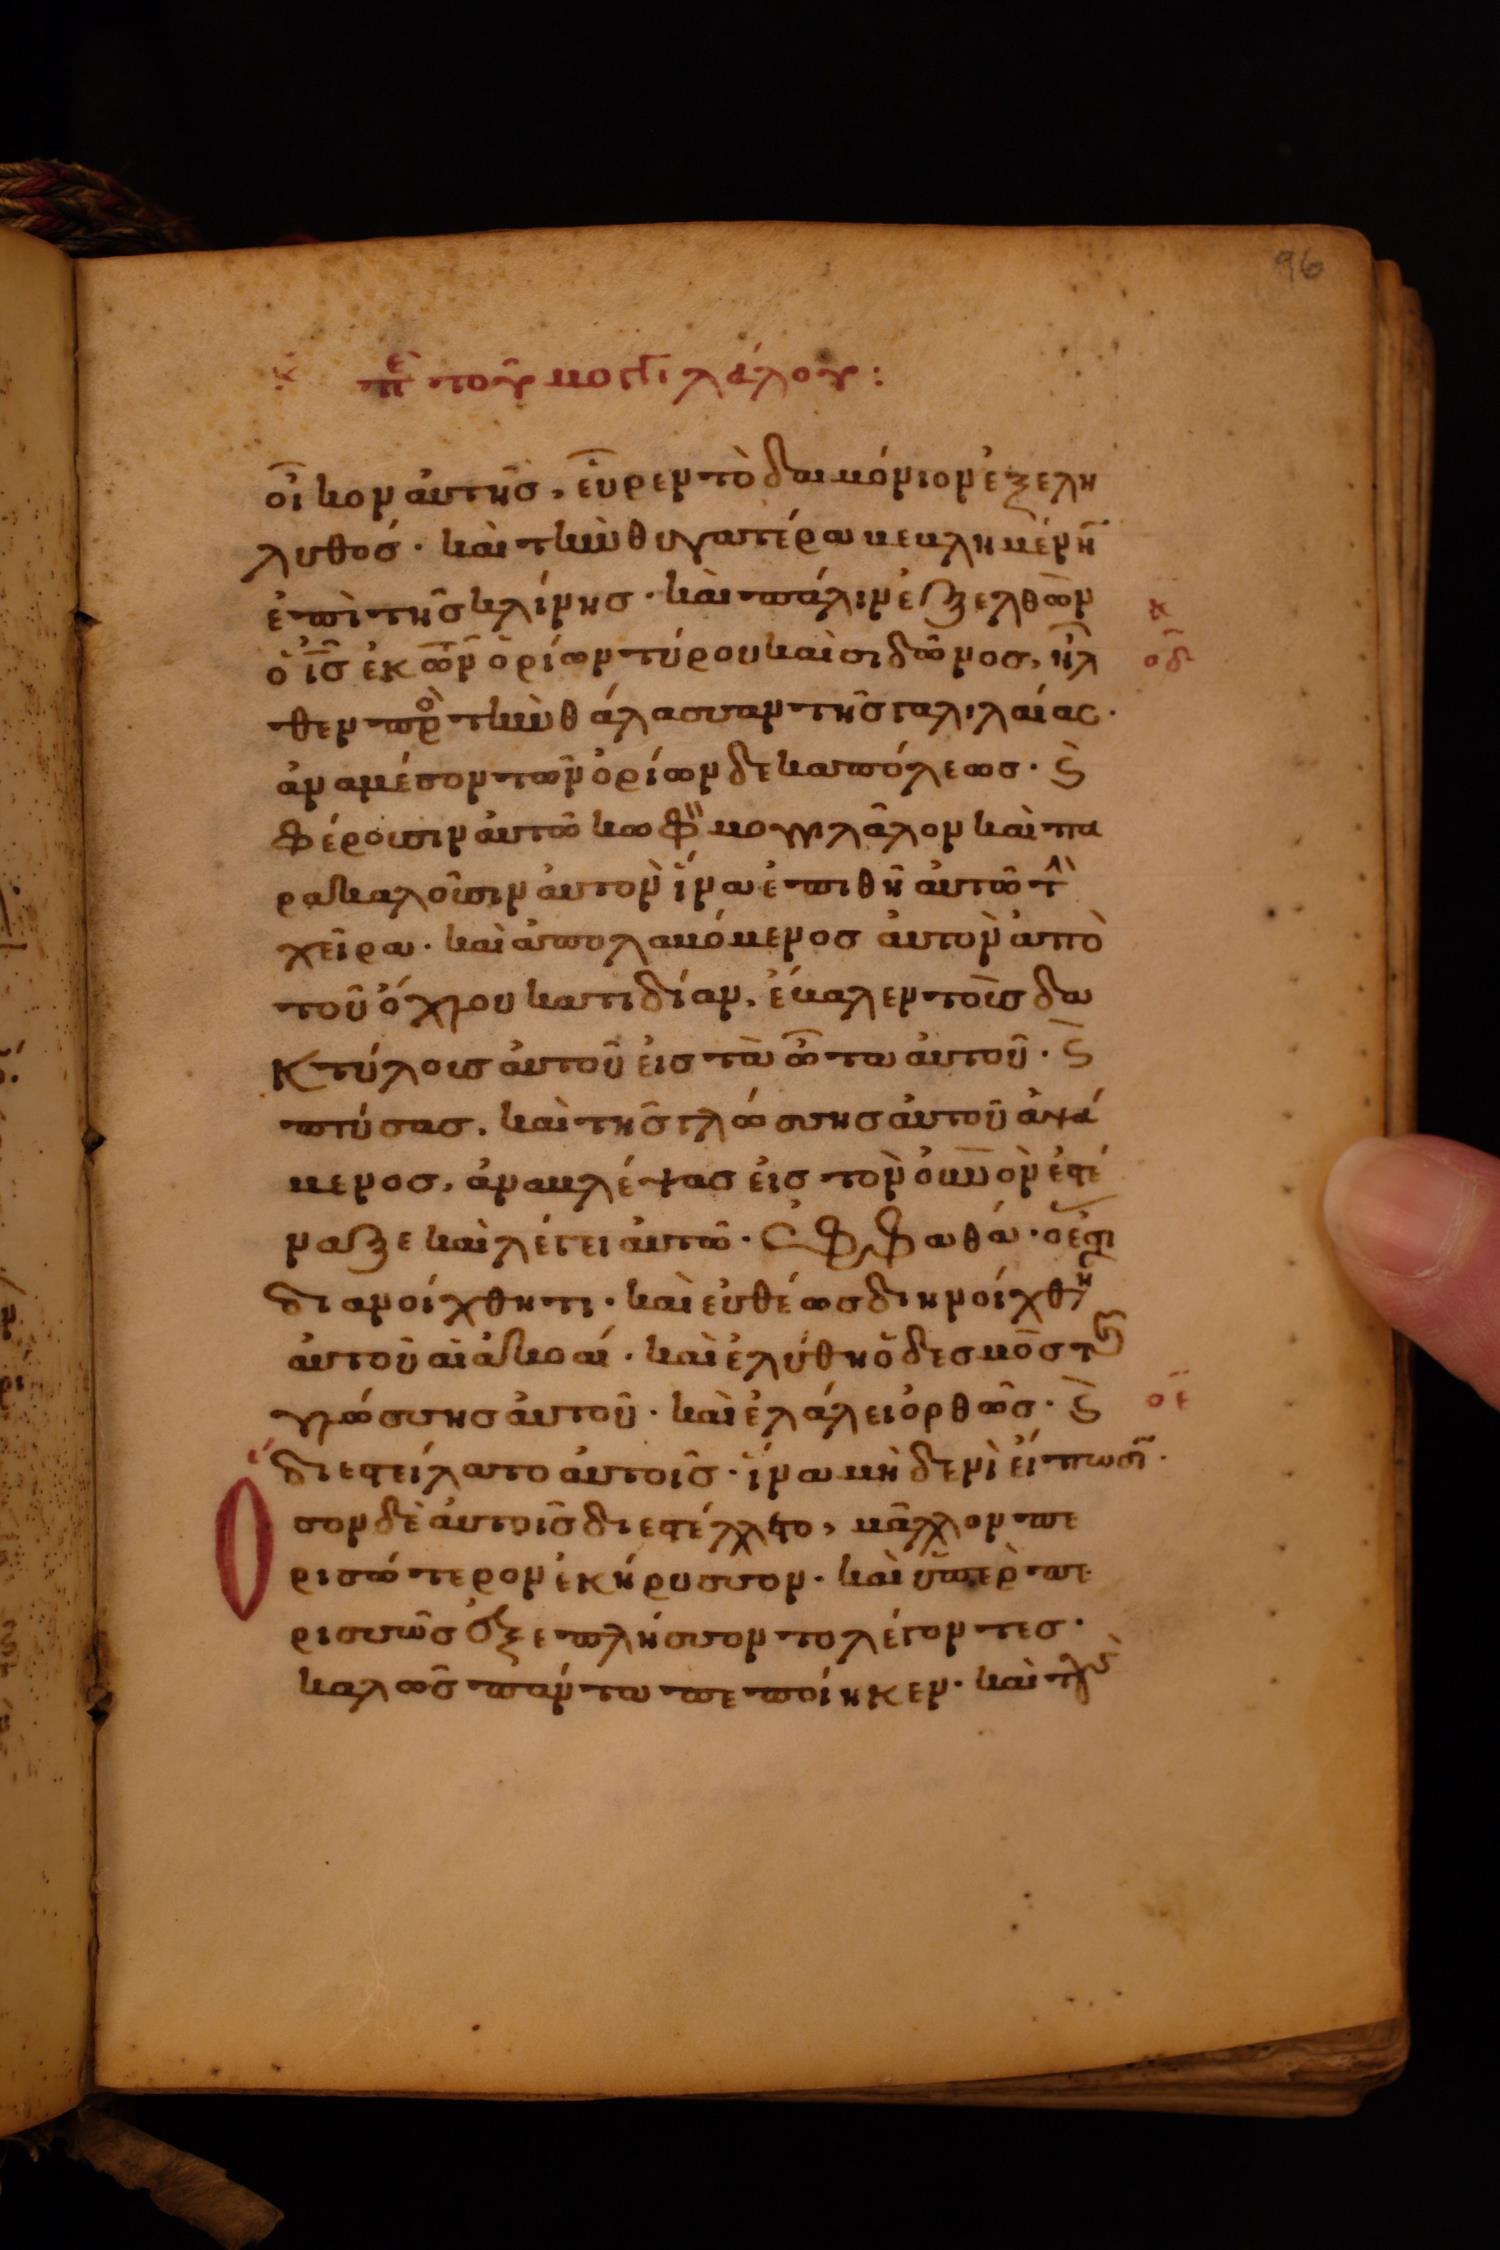 96
κ πε τοῦ μογγιλάλου:
οἶκον αὐτῆσ, εὗρεν τὸ δαιμόνιον ἐξελη
λυθόσ· καὶ τὴν θυγατέρα βεβλημένην
ἐπὶ τῆσ κλίνησ· καὶ πάλιν ἐξελθὼν
κ
ὁ ισ ἐκ τῶν ὁρίων τύρου καὶ σιδῶνοσ, ἦλ
οδ
θεν πρὸ τὴν θάλασσαν τῆσ γαλιλαίας·
ἀναμέσον τῶν ὁρίων δεκαπόλεωσ· ϛ
φέρουσιν αὐτῶ κωφὸν μογγιλάλον καὶ πα
ρακαλοῦσιν αὐτὸν ἵνα ἐπιθῆ αὐτῶ τὴν
χεῖρα· καὶ ἀπολαβόμενοσ αὐτὸν ἀπὸ
τοῦ ὄχλου κατιδίαν, ἔβαλεν τοὺσ δα
κτύλουσ αὐτοῦ εἰσ τὰ ὦτα αὐτοῦ· ϛ
πτύσασ, καὶ τῆσ γλώσσησ αὐτοῦ ἁψά
μενοσ, ἀναβλέψασ εἰσ τὸν οὐνὸν ἐστέ
ναξε καὶ λέγει αὐτῶ· ἐφφαθά· ὅ ἐστι
διανοίχθητι· καὶ εὐθέωσ διηνοίχθη
αὐτοῦ αἱ ἀκοαί· καὶ ἐλύθη ὁ δεσμὸσ τῆσ
γλώσσησ αὐτοῦ· καὶ ἐλάλει ὀρθῶσ· ϛ
οε
διεστείλατο αὐτοῖσ· ἵνα μηδενὶ εἴπωσιν·
Ὅσον δὲ αὐτοῖσ διεστέλλετο, μᾶλλον πε
ρισώτερον ἐκήρυσσον· καὶ ὑπερπε
ρισσῶσ ἐξεπλήσσοντο λέγοντεσ·
καλῶσ πάντα πεποίηκεν· καὶ τοὺσ